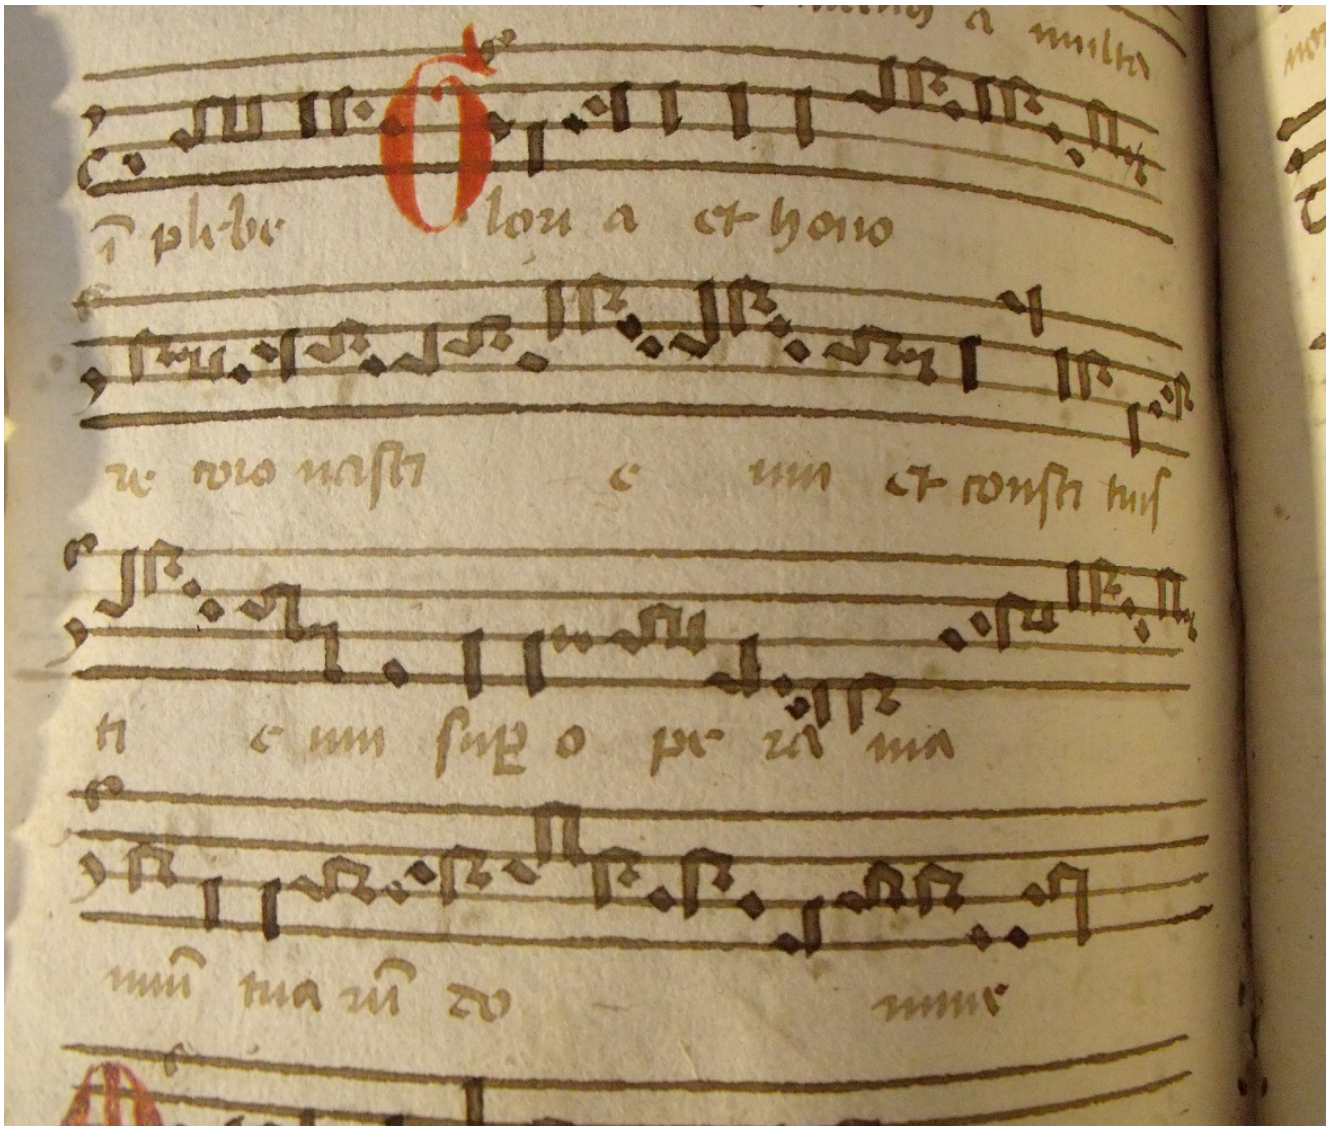 a multa
ī plebe Glori a et hono
re coro nasti e um et consti tuis
ti e um suꝑ o pe ra ma
nuū tua rū do mine